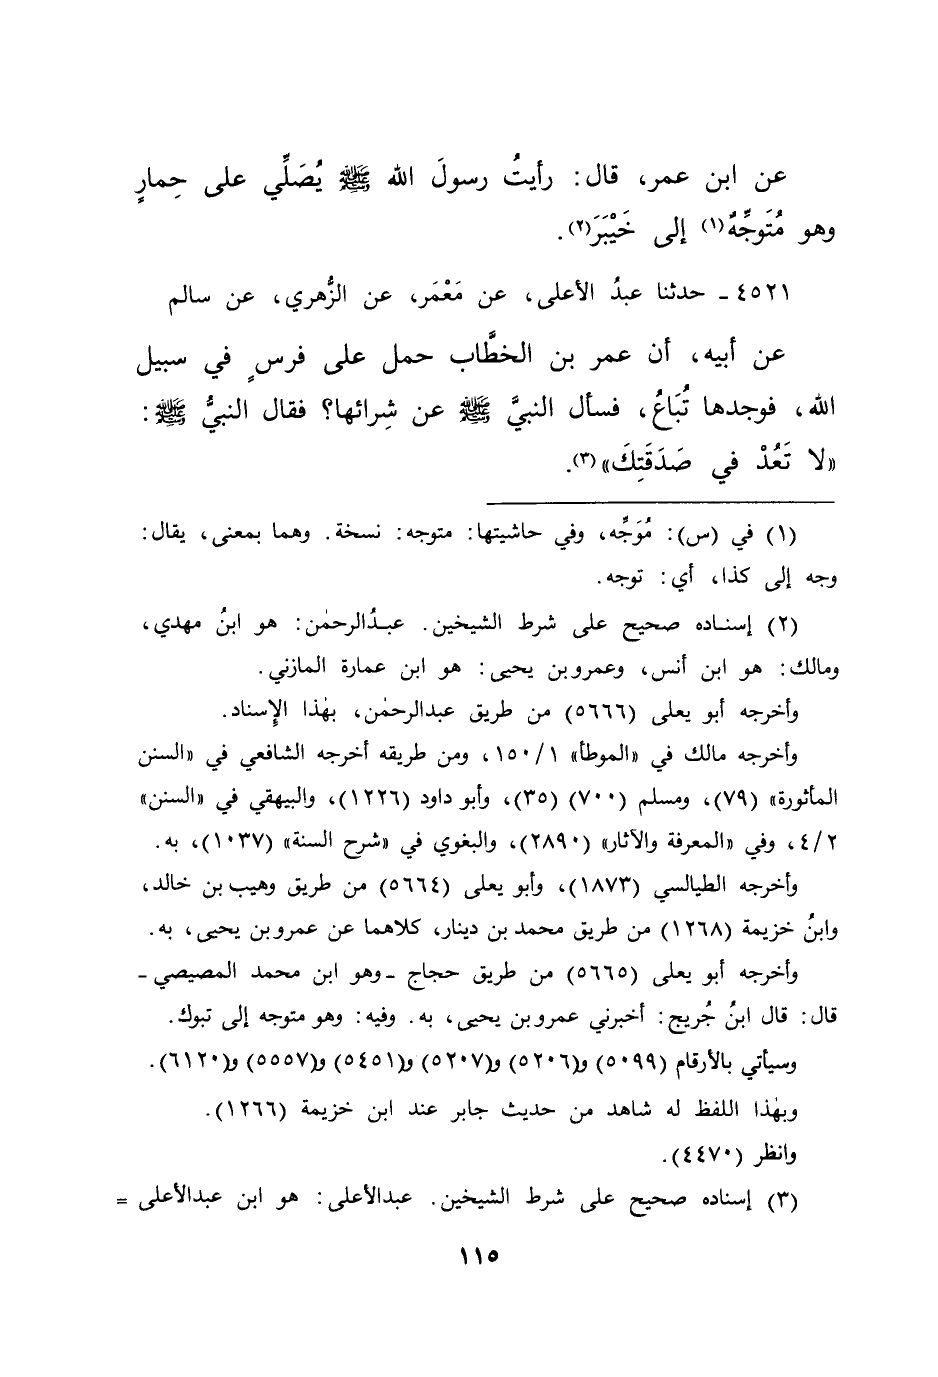 عن ابن عمر، قال: رأيتُ رسولَ الله ﷺ يُصَلِّي على حِمارٍ
وهو مُتَوجِّهٌ(١) إلى خَيْبَرَ(٢).
٤٥٢١ ـ حدثنا عبدُ الأعلى، عن مَعْمَر، عن الزُّهري، عن سالم
عن أبيه، أن عمر بن الخطَّاب حمل على فرسٍ في سبيل
الله، فوجدها تُبَاعُ، فسأل النبيَّ ﷺ عن شِرائها؟ فقال النبيُّ ﷺ:
«لا تَعُدْ في صَدَقَتِكَ»(٣).
(١) في (س): مُوَجِّه، وفي حاشيتها: متوجه: نسخة. وهما بمعنى، يقال:
وجه إلى كذا، أي: توجه.
(٢) إسناده صحيح على شرط الشيخين. عبدُالرحمٰن: هو ابنُ مهدي،
ومالك: هو ابن أنس، وعمرو بن يحيى: هو ابن عمارة المازني.
وأخرجه أبو يعلى (٥٦٦٦) من طريق عبدالرحمٰن، بهٰذا الإِسناد.
وأخرجه مالك في «الموطأ» ١/١٥٠، ومن طريقه أخرجه الشافعي في «السنن
المأثورة» (٧٩)، ومسلم (٧٠٠) (٣٥)، وأبو داود (١٢٢٦)، والبيهقي في «السنن»
٤/٢، وفي «المعرفة والآثار» (٢٨٩٠)، والبغوي في «شرح السنة» (١٠٣٧)، به.
وأخرجه الطيالسي (١٨٧٣)، وأبو يعلى (٥٦٦٤) من طريق وهيب بن خالد،
وابنُ خزيمة (١٢٦٨) من طريق محمد بن دينار، كلاهما عن عمرو بن يحيى، به.
وأخرجه أبو يعلى (٥٦٦٥) من طريق حجاج ـ وهو ابن محمد المصيصي ـ
قال: قال ابنُ جُريج: أخبرني عمرو بن يحيى، به. وفيه: وهو متوجه إلى تبوك.
وسيأتي بالأرقام (٥٠٩٩) و(٥٢٠٦) و(٥٢٠٧) و(٥٤٥١) و(٥٥٥٧) و(٦١٢٠).
وبهٰذا اللفظ له شاهد من حديث جابر عند ابن خزيمة (١٢٦٦).
وانظر (٤٤٧٠).
(٣) إسناده صحيح على شرط الشيخين. عبدالأعلى: هو ابن عبدالأعلى =
١١٥